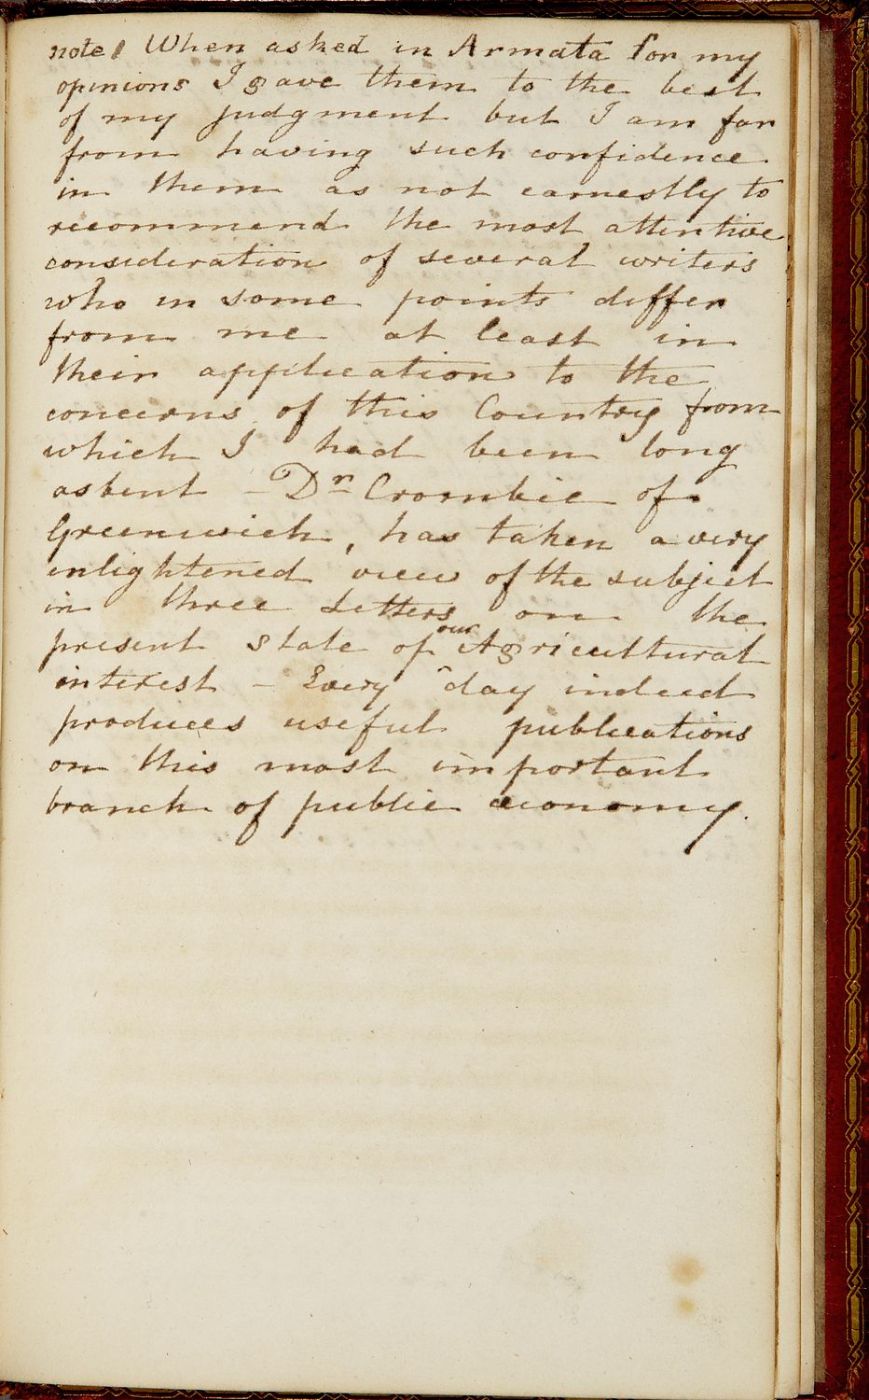 note, When asked in Armata for my
opinions I gave them to the best
of my judgment but I am far
from having such confidence
in them as not earnestly to
recommend the most attentive
consideration of several writers
who in some points differ
from me at least in
their application to the
concerns of this Country from
which I had been long
absent – Dr Crombie of
Greenwich, has taken a very
enlightened view of the subject
in three Letters on the
present state of our Agricultural
interest – Every day indeed
produces useful publications
on this most important
branch of public œconomy.